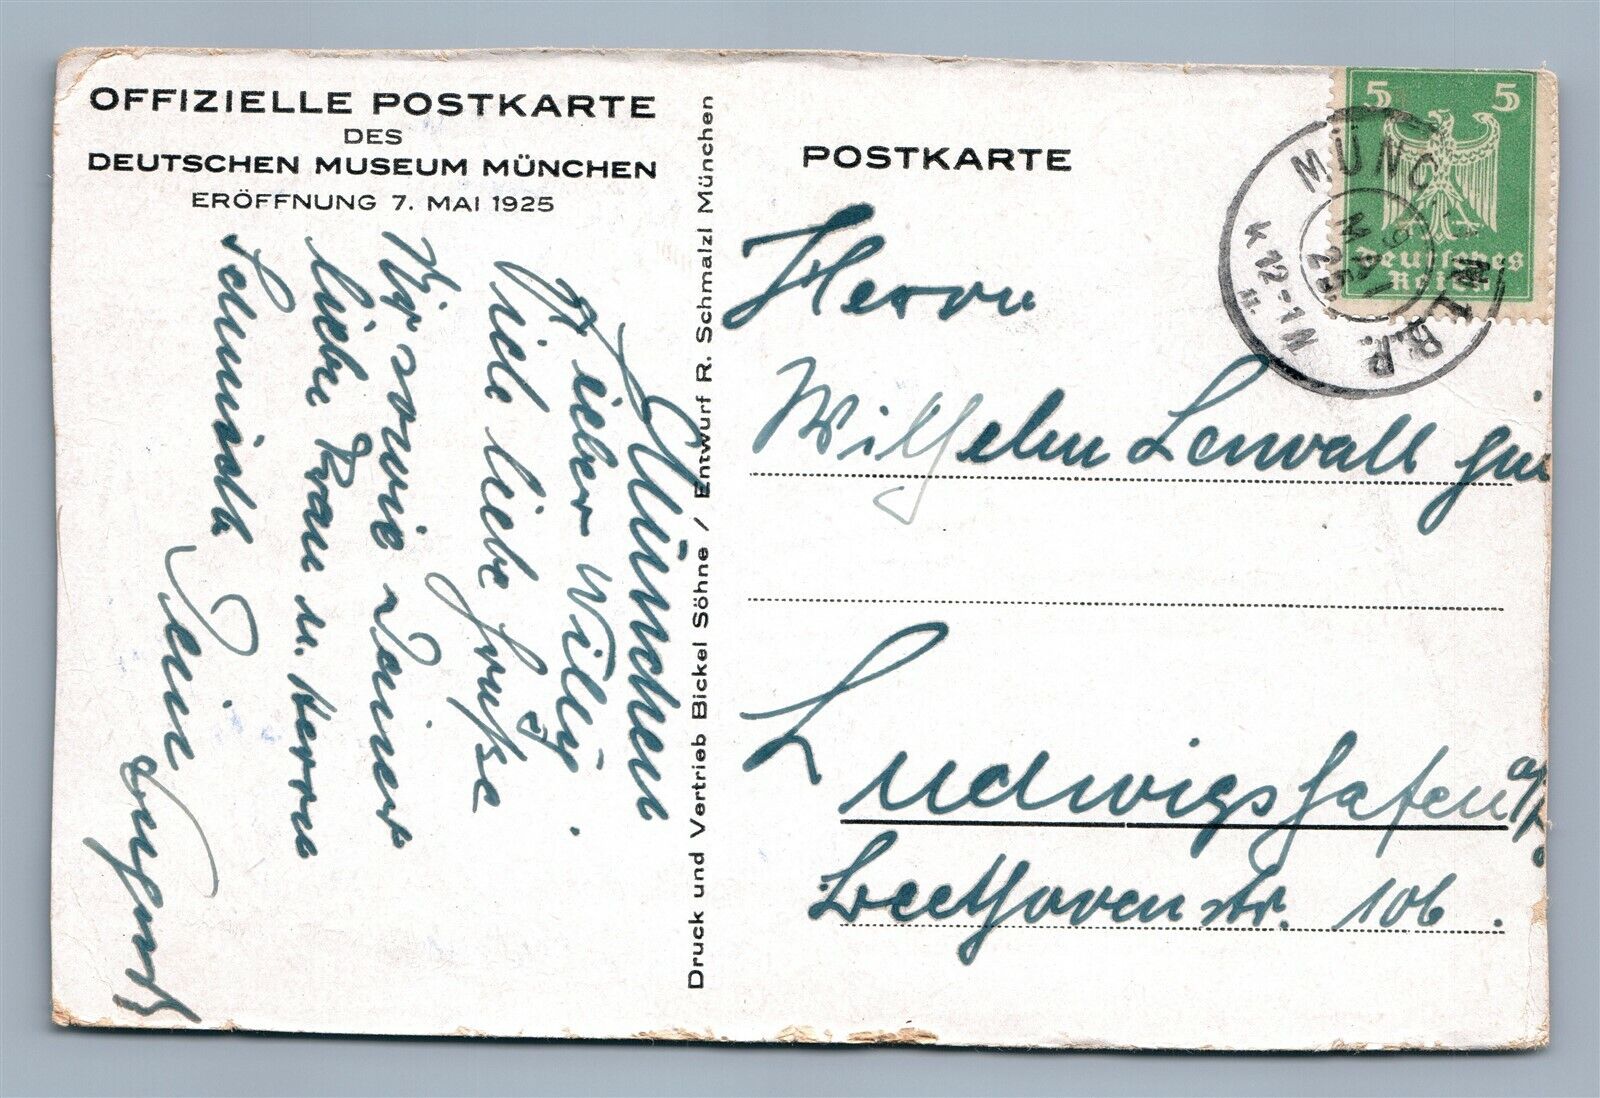 OFFIZIELLE POSTKARTE
DES
DEUTSCHEN MUSEUM MÜNCHEN
ERÖFFNUNG 7. MAI 1925
München
Lieber Willy.
Viele liebe Grüße
Dir sowie Deiner
liebe Frau u. Herrn
Schmidt
Dein
Druck und Vertrieb Bickel Söhne / Entwurf R. Schmalzl München
POSTKARTE
5 5
Deutsches
Reich
MÜNCHEN
9
MAI
25
K 12-1 N
B.P.
Herrn
Wilhelm Lenvall jun
Ludwigshafen a/
Beethovenstr. 106.